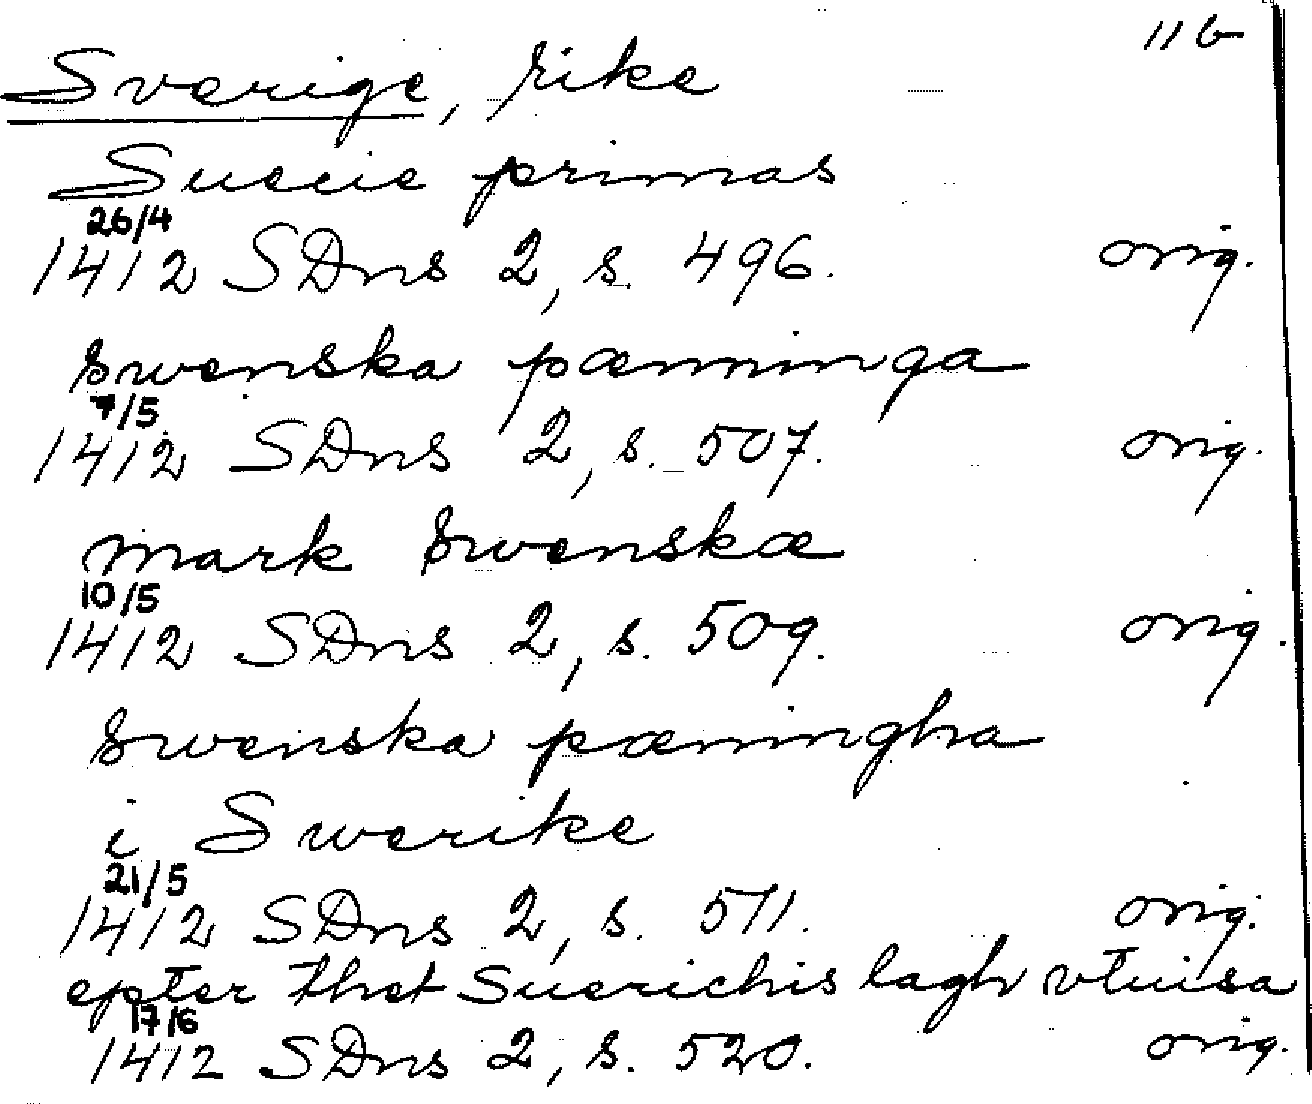 116
Sverige, rike
Suecie primas
26/4
1412 SDns 2, s. 496. orig.
Swenska pænninga
7/5
1412 SDns 2, s. 507. orig.
mark Swenskæ
10/5
1412 SDns 2, s. 509. orig.
Swenska pæningha
i Swerike
21/5
1412 SDns 2, s. 511. orig.
epter thet Suerichis lagh vtuisa
17/6
1412 SDns 2, s. 520. orig.